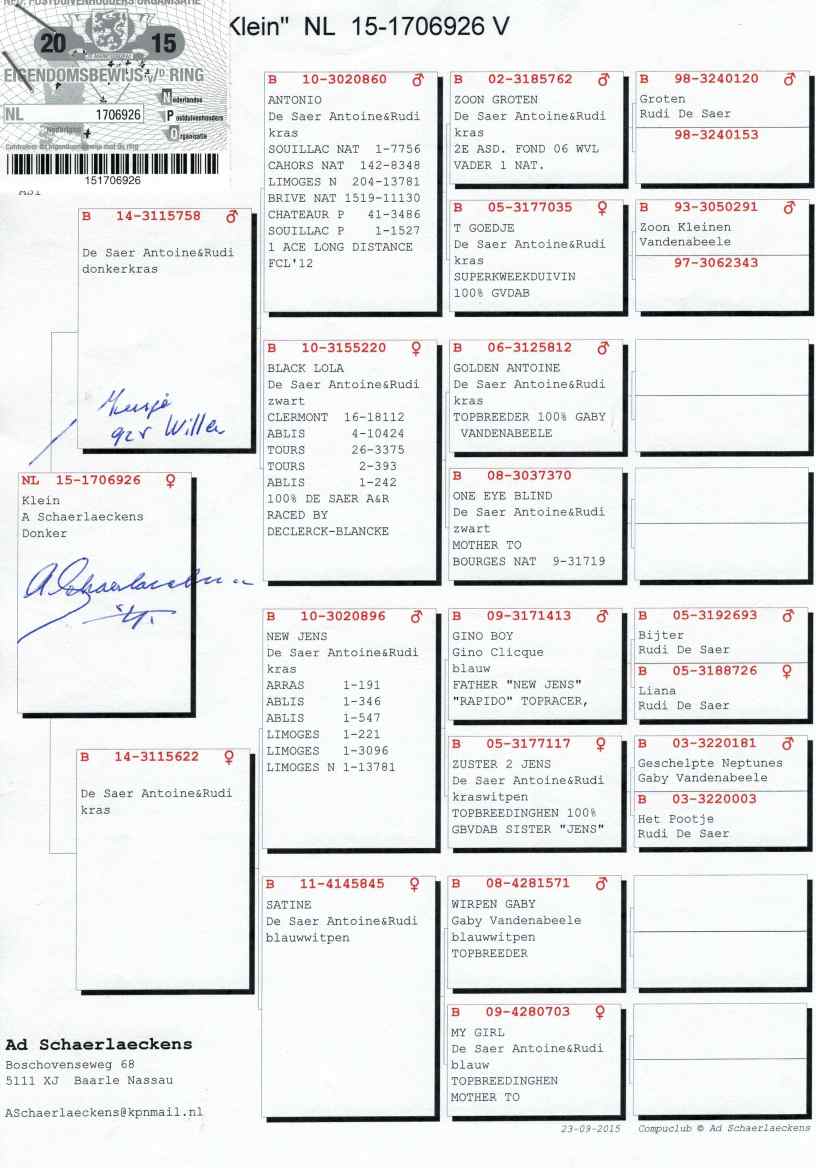 NED. POSTDUIVENHOUDERS ORGANISATIE
Klein" NL 15-1706926 V
20 15
EIGENDOMSBEWIJS v/d RING
Nederlandse
NL 1706926
Postduivenhouders
Nederland
Organisatie
151706926
B 14-3115758 ♂
De Saer Antoine&Rudi
donkerkras
gzv Willem
NL 15-1706926 ♀
Klein
A Schaerlaeckens
Donker
B 14-3115622 ♀
De Saer Antoine&Rudi
kras
B 10-3020860 ♂
ANTONIO
De Saer Antoine&Rudi
kras
SOUILLAC NAT 1-7756
CAHORS NAT 142-8348
LIMOGES N 204-13781
BRIVE NAT 1519-11130
CHATEAUR P 41-3486
SOUILLAC P 1-1527
1 ACE LONG DISTANCE
FCL'12
B 10-3155220 ♀
BLACK LOLA
De Saer Antoine&Rudi
zwart
CLERMONT 16-18112
ABLIS 4-10424
TOURS 26-3375
TOURS 2-393
ABLIS 1-242
100% DE SAER A&R
RACED BY
DECLERCK-BLANCKE
B 10-3020896 ♂
NEW JENS
De Saer Antoine&Rudi
kras
ARRAS 1-191
ABLIS 1-346
ABLIS 1-547
LIMOGES 1-221
LIMOGES 1-3096
LIMOGES N 1-13781
B 11-4145845 ♀
SATINE
De Saer Antoine&Rudi
blauwwitpen
B 02-3185762 ♂
ZOON GROTEN
De Saer Antoine&Rudi
kras
2E ASD. FOND 06 WVL
VADER 1 NAT.
B 05-3177035 ♀
T GOEDJE
De Saer Antoine&Rudi
kras
SUPERKWEEKDUIVIN
100% GVDAB
B 06-3125812 ♂
GOLDEN ANTOINE
De Saer Antoine&Rudi
kras
TOPBREEDER 100% GABY
VANDENABEELE
B 08-3037370
ONE EYE BLIND
De Saer Antoine&Rudi
zwart
MOTHER TO
BOURGES NAT 9-31719
B 09-3171413 ♂
GINO BOY
Gino Clicque
blauw
FATHER "NEW JENS"
"RAPIDO" TOPRACER,
B 05-3177117 ♀
ZUSTER 2 JENS
De Saer Antoine&Rudi
kraswitpen
TOPBREEDINGHEN 100%
GBVDAB SISTER "JENS"
B 08-4281571 ♂
WIRPEN GABY
Gaby Vandenabeele
blauwwitpen
TOPBREEDER
B 09-4280703 ♀
MY GIRL
De Saer Antoine&Rudi
blauw
TOPBREEDINGHEN
MOTHER TO
B 98-3240120 ♂
Groten
Rudi De Saer
98-3240153
B 93-3050291 ♂
Zoon Kleinen
Vandenabeele
97-3062343
B 05-3192693 ♂
Bijter
Rudi De Saer
B 05-3188726 ♀
Liana
Rudi De Saer
B 03-3220181 ♂
Geschelpte Neptunes
Gaby Vandenabeele
B 03-3220003
Het Pootje
Rudi De Saer
Ad Schaerlaeckens
Boschovenseweg 68
5111 XJ Baarle Nassau
ASchaerlaeckens@kpnmail.nl
23-09-2015 Compuclub © Ad Schaerlaeckens